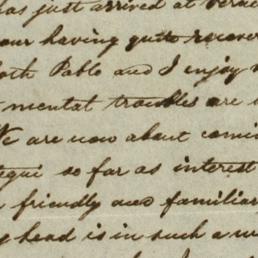 has just arrived at Vera
our having quite recover
both Pablo and I enjoy
mental troubles are
We are now about comi
tegui so far as interest
friendly and familiar
head is in such a w